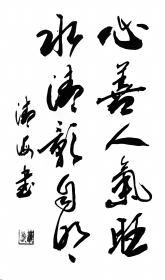 心善人氣旺
水清影自明
清山書